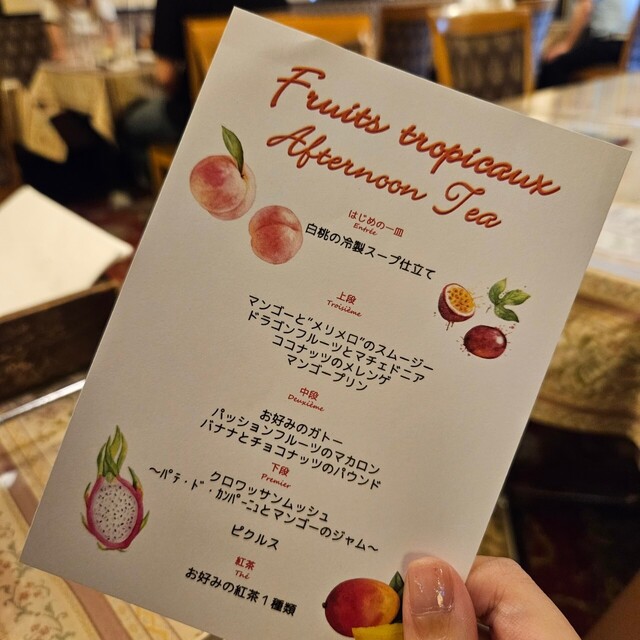 Fruits tropicaux
Afternoon Tea
はじめの一皿
Entrée
白桃の冷製スープ仕立て
上段
Troisième
マンゴーと"メリメロ"のスムージー
ドラゴンフルーツとマチェドニア
ココナッツのメレンゲ
マンゴープリン
中段
Deuxième
お好みのガトー
パッションフルーツのマカロン
バナナとチョコナッツのパウンド
下段
Premier
クロワッサンムッシュ
～ﾊﾟﾃ・ﾄﾞ・ｶﾝﾊﾟｰﾆｭとマンゴーのジャム～
ピクルス
紅茶
Thé
お好みの紅茶１種類